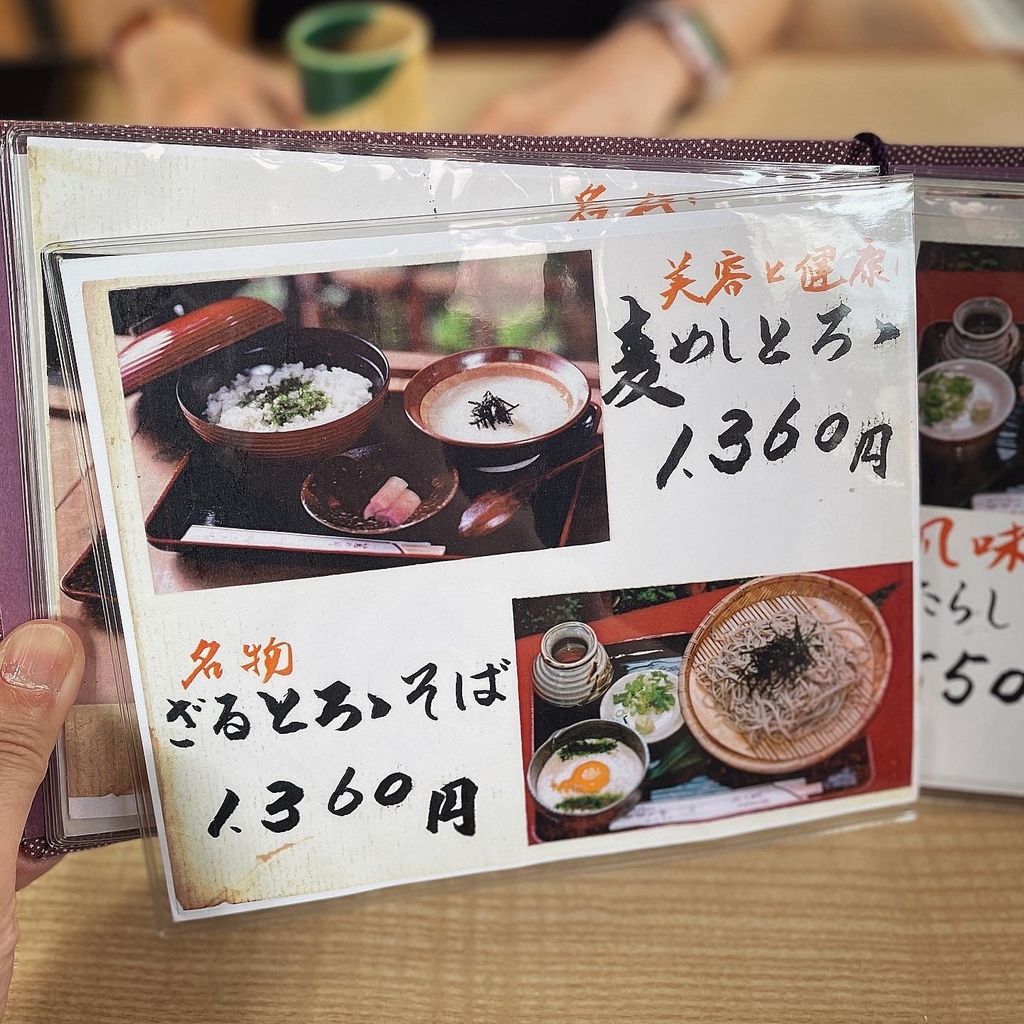 美容と健康
麦めしとろゝ
1.360円
名物
ざるとろゝそば
1.360円
風味
たらし
550